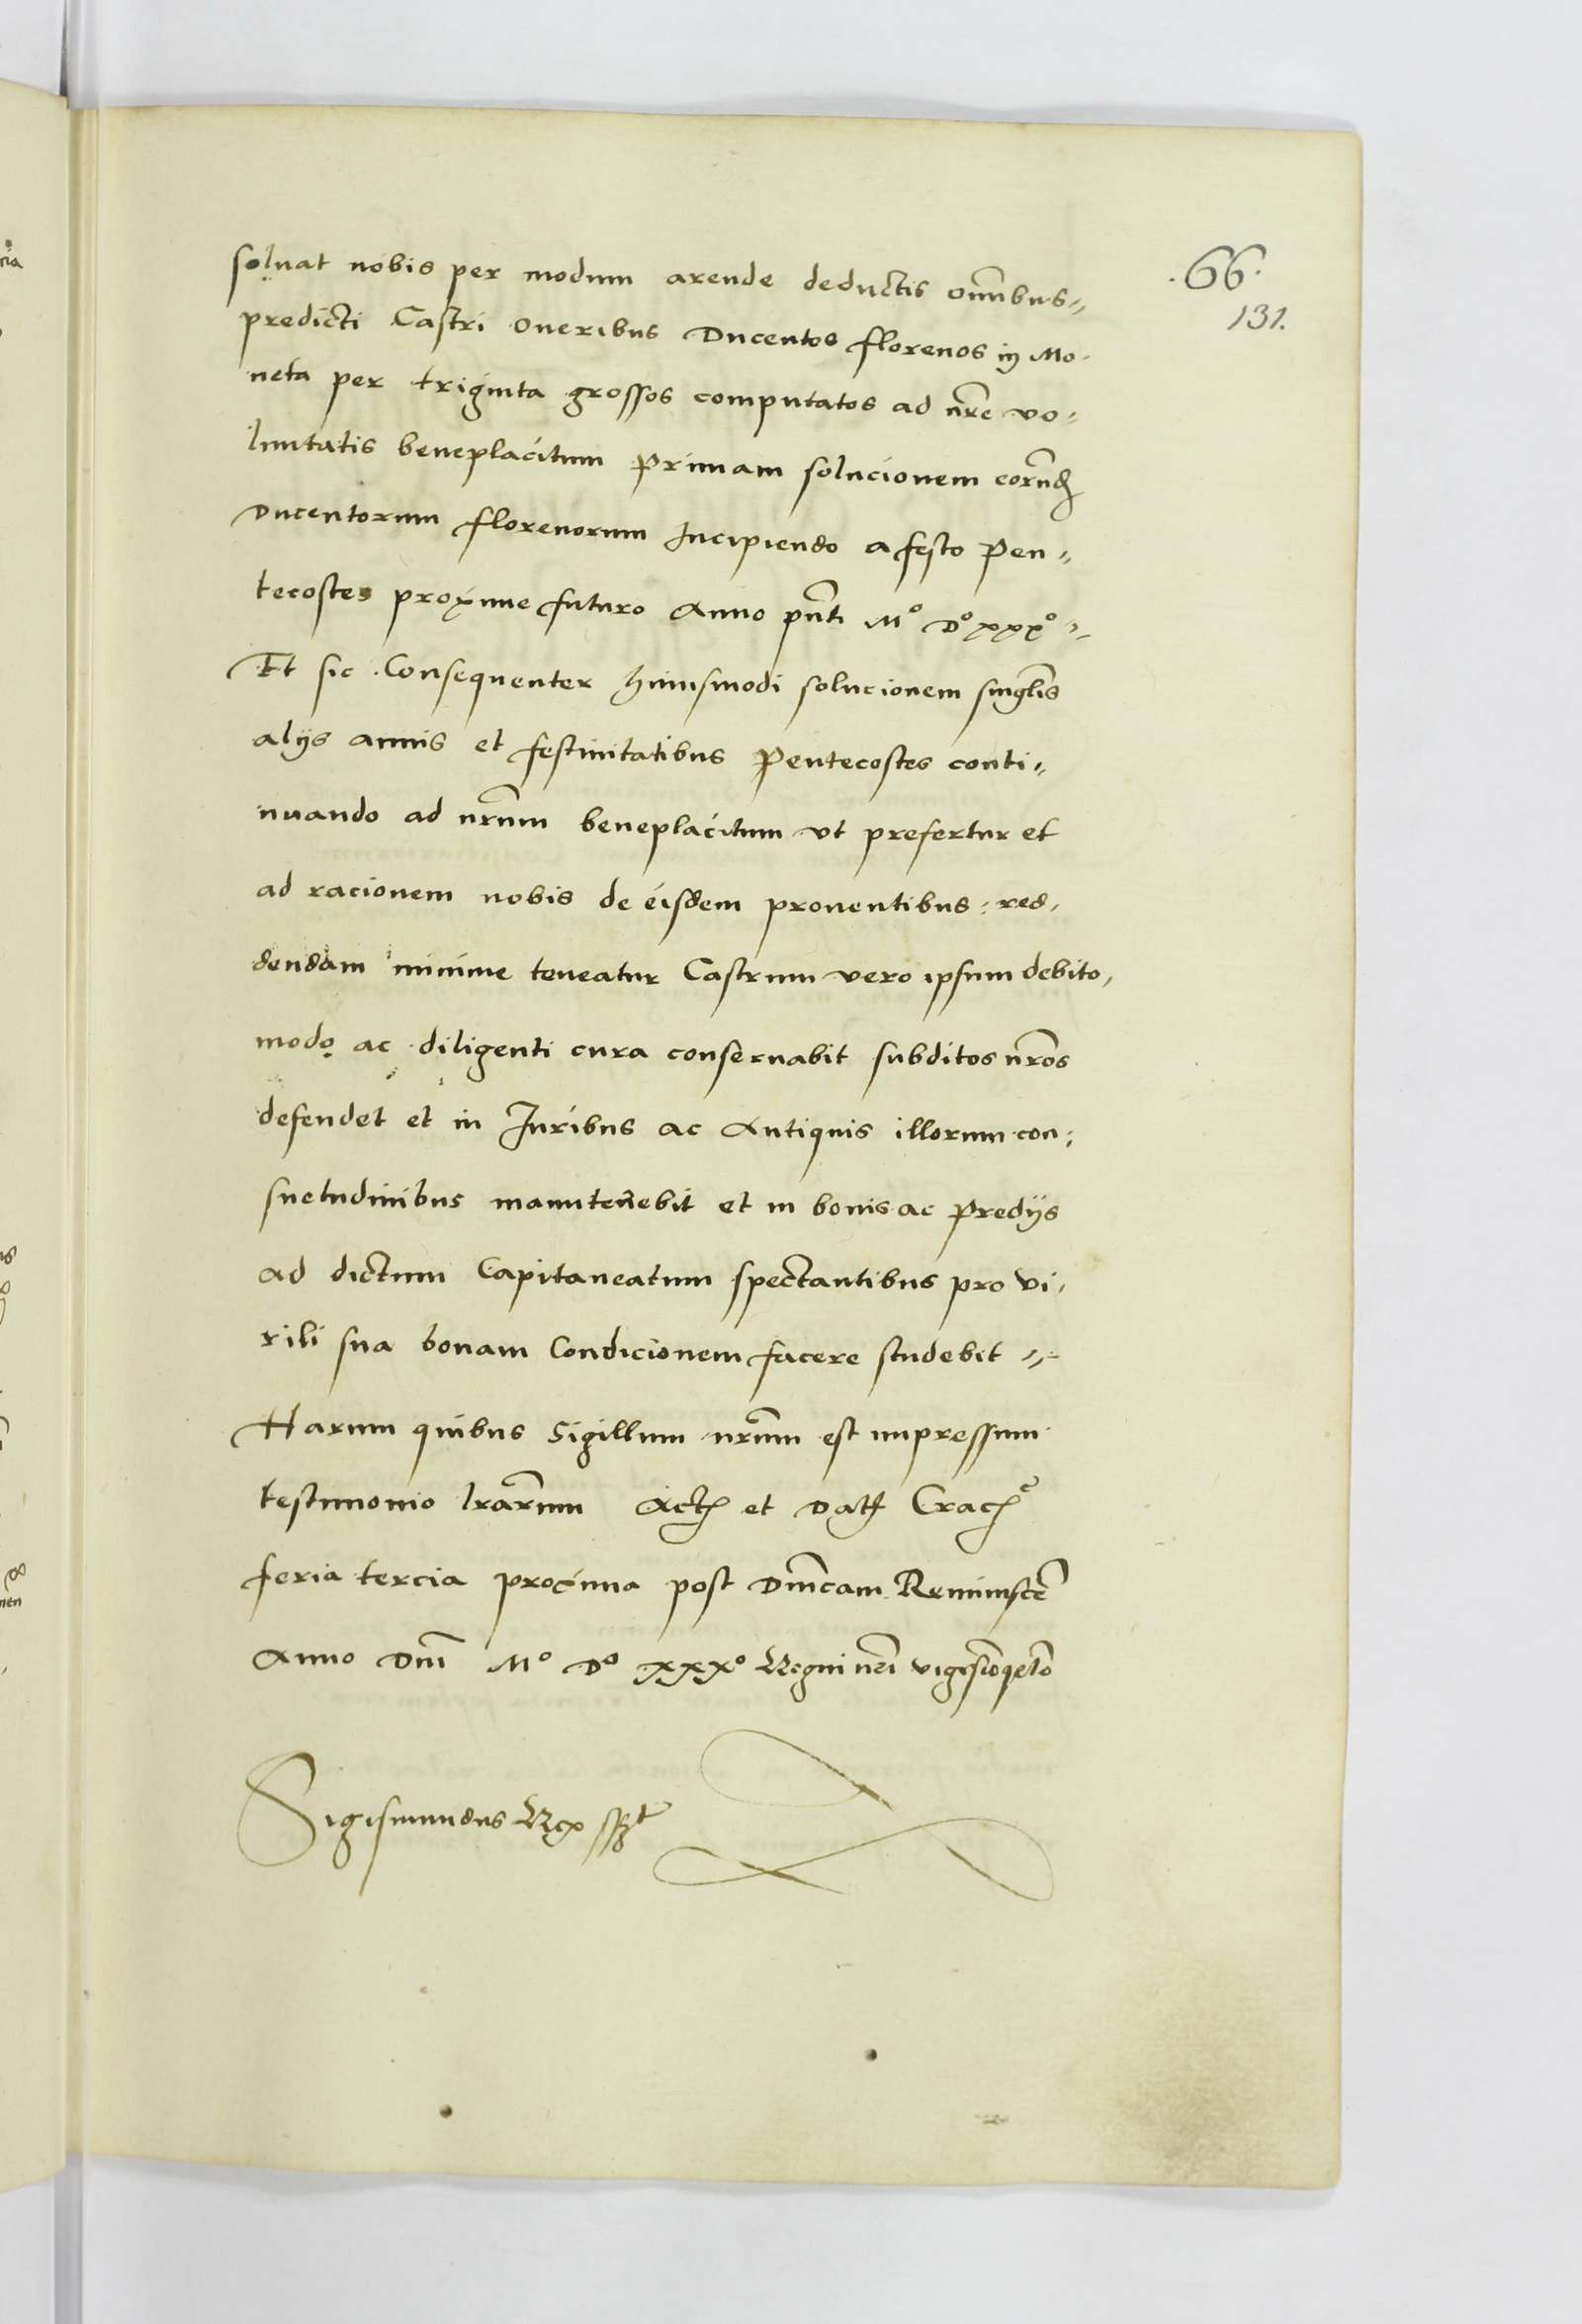 .66.
131.
soluat nobis per modum arende deductis om̄ibus„
predicti Castri oneribus Ducentos florenos in Mo-
neta per triginta grossos computatos ad nr̄e vo-
luntatis beneplacitum primam solucionem eorund̄
Ducentorum florenorum Incipiendo a festo Pen„
tecostes proxime futuro Anno pn̄ti Mº Dº xxxº„
Et sic Consequenter huiusmodi solucionem singl̄is
alijs annis et festiuitatibus Pentecostes conti„
nuando ad nr̄um beneplacitum vt prefertur et
ad racionem nobis de eisdem prouentibus red,
dendam minime teneatur Castrum vero ipsum debito,
modo ac diligenti cura conseruabit subditos nr̄os
defendet et in Juribus ac Antiquis illorum con:
suetudinibus manutenebit et in bonis ac predijs
ad dictum Capitaneatum spectantibus pro vi,
rili sua bonam Condicionem facere studebit„
Harum quibus Sigillum nr̄um est impressum
testimonio lr̄arum Act̄ et Dat̄ Crac̄
feria tercia proxima post Dn̄icam Reminiscē
Anno Dn̄i Mº Dº xxxº Regni nr̄i vigesīoq̄rto
Sigismundus Rex sszt